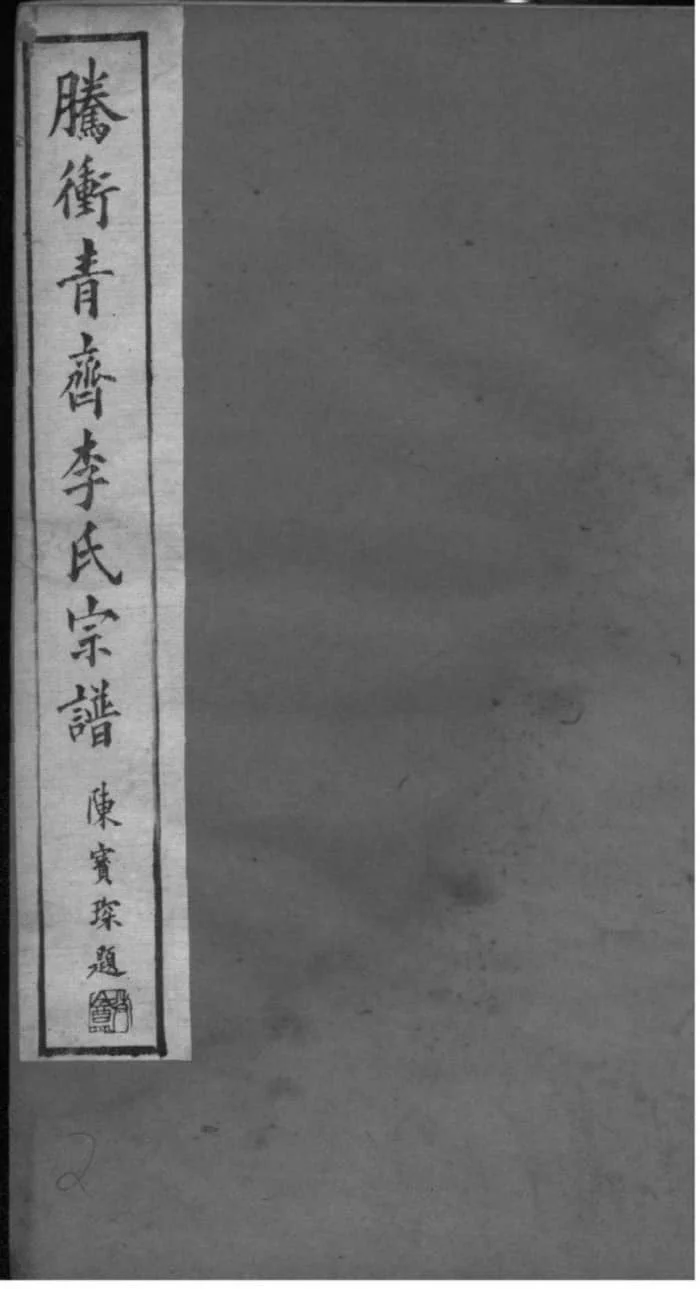 騰衝青齊李氏宗譜
陳寶琛題
2